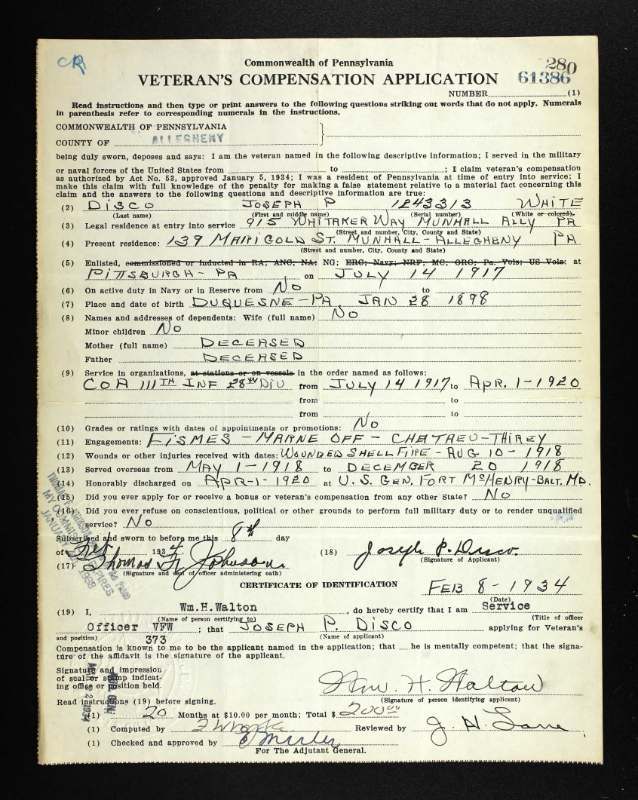 CR
Commonwealth of Pennsylvania
280
VETERAN'S COMPENSATION APPLICATION
61386
NUMBER (1)
Read instructions and then type or print answers to the following questions striking out words that do not apply. Numerals
in parenthesis refer to corresponding numerals in the instructions.
COMMONWEALTH OF PENNSYLVANIA
COUNTY OF ALLEGHENY
being duly sworn, deposes and says: I am the veteran named in the following descriptive information; I served in the military
or naval forces of the United States from to ; I claim veteran's compensation
as authorized by Act No. 53, approved January 5, 1934; I was a resident of Pennsylvania at time of entry into service; I
make this claim with full knowledge of the penalty for making a false statement relative to a material fact concerning this
claim and the answers to the following questions and descriptive information are true:
(2) DISCO JOSEPH P 1243313 WHITE
(Last name) (First and middle name) (Serial number) (White or colored).
(3) Legal residence at entry into service 915 WHITAKER WAY MUNHALL ALLY PA
(Street and number, City, County and State)
(4) Present residence: 139 MARIGOLD ST. MUNHALL-ALLEGHENY PA
(Street and number, City, County and State)
(5) Enlisted, commissioned or inducted in RA; ANC, NA; NG; ERC; Navy; NRF; MC, ORC; Ps. Vols; US Vols: at
PITTSBURGH-PA on JULY 14 1917
(6) On active duty in Navy or in Reserve from NO to
(7) Place and date of birth DUQUESNE-PA. JAN 28 1898
(8) Names and addresses of dependents: Wife (full name) NO
Minor children NO
Mother (full name) DECEASED
Father DECEASED
(9) Service in organizations, at stations or on vessels in the order named as follows:
CO A 111TH INF 28TH DIV from JULY 14 1917 to APR. 1-1920
from to
from to
(10) Grades or ratings with dates of appointments or promotions: NO
(11) Engagements: FISMES - MARNE OFF - CHATEU-THIREY
(12) Wounds or other injuries received with dates: WOUNDED SHELL FIRE - AUG 10 - 1918
(13) Served overseas from MAY 1-1918 to DECEMBER 20 1918
(14) Honorably discharged on APR-1-1920 at U.S. GEN. FORT McHENRY-BALT. MD.
(15) Did you ever apply for or receive a bonus or veteran's compensation from any other State? NO
(16) Did you ever refuse on conscientious, political or other grounds to perform full military duty or to render unqualified
service? NO
Subscribed and sworn to before me this 8th day
of Feb 1934 (18) Joseph P. Disco.
(Signature of Applicant)
(17) Thomas F. Johnson
(Signature and seal of officer administering oath)
CERTIFICATE OF IDENTIFICATION FEB 8-1934
(Date)
(19) I, Wm. H. Walton, do hereby certify that I am Service
(Name of person certifying to) (Title of officer
Officer VFW ; that JOSEPH P. DISCO applying for Veteran's
and position) 373 (Name of applicant)
Compensation is known to me to be the applicant named in the application; that he is mentally competent; that the signa-
ture of the affidavit is the signature of the applicant.
Signature and impression
of seal or stamp indicat-
ing office or position held.
Wm. H. Walton
(Signature of person identifying applicant)
Read instructions (19) before signing.
(1) 20 Months at $10.00 per month: Total $ 200.00
(1) Computed by Reviewed by J. H. Lane
(1) Checked and approved by
For The Adjutant General.